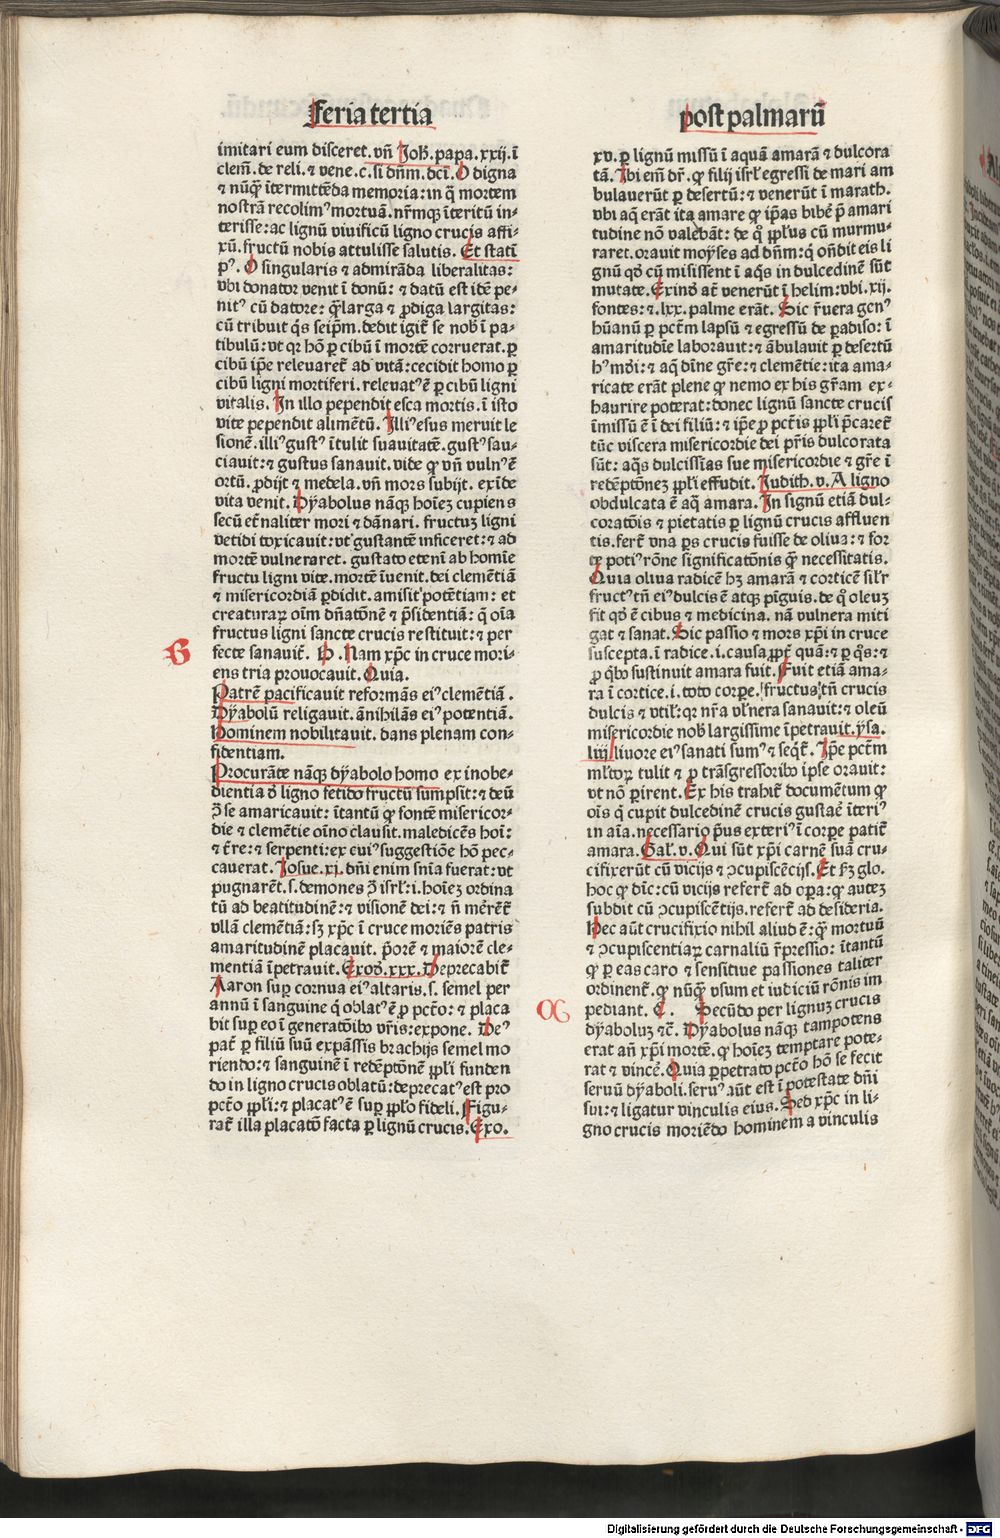 feria tertia
post palmarū
imitari eum disceret. vn̄ Joh̄. papa. xxij. ī
clem̄. de reli. ⁊ vene. c. si dn̄m. dcī. O digna
⁊ nūq̄ ītermittēda memoria: in q̄ mortem
nostrā recolimꝰ mortuā. nr̄mqꝫ īteritū in-
terisse: ac lignū viuificū ligno crucis affi-
xū. fructū nobis attulisse salutis. Et statī
pꝰ. O singularis ⁊ admirāda liberalitas:
vbi donator venit ī donū: ⁊ datū est idē pe-
nitꝰ cū datore: q̄ larga ⁊ ꝓdiga largitas:
cū tribuit q̄s seip̄m. dedit igit̄ se nob̄ ī pa-
tibulū: vt qꝛ hō ꝑ cibū ī mortē corruerat. ꝑ
cibū ip̄e releuaret̄ ad vitā: cecidit homo ꝑ
cibū ligni mortiferi. releuatꝰ ē ꝑ cibū ligni
vitalis. In illo pependit esca mortis. ī isto
vite pependit alimētū. Illiꝰ esus meruit le
sionē. illiꝰ gustꝰ ītulit suauitatē. gustꝰ sau-
ciauit: ⁊ gustus sanauit. vide qꝫ vn̄ vulnꝰ ē
ortū. ꝓdijt ⁊ medela. vn̄ mors subijt. exīde
vita venit. Dyabolus nāqꝫ hoīez cupiens
secū et̄naliter mori ⁊ dānari. fructuꝫ ligni
vetidi toxicauit: vt gustantē inficeret: ⁊ ad
mortē vulneraret. gustato etenī ab homīe
fructu ligni vite. mortē īuenit. dei clemētiā
⁊ misericordiā ꝑdidit. amisit potētiam: et
creaturaꝝ oīm dn̄atōnē ⁊ p̄sidentiā: q̄ oīa
fructus ligni sancte crucis restituit: ⁊ per
fecte sanauit̄. B. Nam xp̄c in cruce mori-
ens tria prouocauit. Quia.
Patrē pacificauit reformās eiꝰ clemētiā.
Dyabolū religauit. ānihilās eiꝰ potentiā.
Hominem nobilitauit. dans plenam con-
fidentiam.
Procurāte nāqꝫ dyabolo homo ex inobe-
dientia ō ligno fetido fructū sumpsit: ⁊ deū
ꝯ̄ se amaricauit: ītantū qꝫ fontē misericor-
die ⁊ clemētie oīno clausit. maledicēs hoī:
⁊ t̄re: ⁊ serpenti: ex cuiꝰ suggestiōe hō pec-
cauerat. Josue. xi. dn̄i enim sn̄ia fuerat: vt
pugnarēt. s. demones ꝯ̄ isrl̄: i. hoīez ordina
tū ad beatitudinē: ⁊ visionē dei: ⁊ n̄ mērēt̄
vllā clemētiā: sꝫ xp̄c ī cruce moriēs patris
amaritudinē placauit. p̄orē ⁊ maiorē cle-
mentiā īpetrauit. Exoō. xxx. Deprecabit̄
Aaron suꝑ cornua eiꝰ altaris. s. semel per
annū ī sanguine q̄ oblatꝰ ē ꝓ pctō: ⁊ placa
bit suꝑ eo ī generatōibꝰ vr̄is: expone. Deꝰ
pat̄ ꝑ filiū suū expāssis brachijs semel mo
riendo: ⁊ sanguinē ī redēptōnē ꝓpl̄i funden
do in ligno crucis oblatū: deprecatꝰ est pro
pctō ꝓpl̄i: ⁊ placatꝰ ē suꝑ ꝓpl̄o fideli. Figu-
rat̄ illa placatō facta ꝑ lignū crucis. Exo.
B
xv. ꝑ lignū missū ī aquā amarā ⁊ dulcora
tā. Ibi em̄ dr̄. qꝫ filij isrl̄ egressi de mari am
bulauerūt ꝑ desertū: ⁊ venerūt ī marath.
vbi aq̄ erāt ita amare qꝫ ip̄as bibē p̄ amari
tudine nō valebāt: de q̄ ꝓpl̄us cū murmu-
raret. orauit moyses ad dn̄m: q̄ on̄dit eis li
gnū qō cū misissent ī aq̄s in dulcedinē sūt
mutate. Exinō at̄ venerūt ī helim: vbi. xij.
fontes: ⁊. lxx. palme erāt. Sic r̄uera genꝰ
hūanū ꝑ pctm̄ lapsū ⁊ egressū de ꝑadiso: ī
amaritudīe laborauit: ⁊ ābulauit ꝑ desertū
hꝰ mōi: ⁊ aq̄ dīne gr̄e: ⁊ clemētie: ita ama-
ricate erāt plene qꝫ nemo ex his gr̄am ex-
haurire poterat: donec lignū sancte crucis
īmissū ē ī dei filiū: ⁊ ip̄e ꝓ pctīs ꝓpl̄i p̄caret̄
tūc viscera misericordie dei pr̄is dulcorata
sūt: aq̄s dulcissīas sue misericordie ⁊ gr̄e ī
redēptōnez ꝓpl̄i effudit. Judith. v. A ligno
obdulcata ē aq̄ amara. In signū etiā dul-
coratōis ⁊ pietatis ꝑ lignū crucis affluen
tis. fert̄ vna ꝑs crucis fuisse de oliua: ⁊ for
te potiꝰ rōne significatōnis q̄ necessitatis.
Quia oliua radicē hꝫ amarā ⁊ corticē sil̄r
fructꝰ tn̄ eiꝰ dulcis ē atqꝫ pīguis. de q̄ oleuꝫ
fit qō ē cibus ⁊ medicina. nā vulnera miti
gat ⁊ sanat. Sic passio ⁊ mors xp̄i in cruce
suscepta. ī radice. i. causa ꝓpt̄ quā: ⁊ ꝑ q̄s: ⁊
ꝓ qƀo sustinuit amara fuit. Fuit etiā ama-
ra ī cortice. i. toto corꝑe. fructusꝰ tn̄ crucis
dulcis ⁊ vtil̄: qꝛ nr̄a vl̄nera sanauit: ⁊ oleū
misericordie nob̄ largissime īpetrauit. ysa.
liij. liuore eiꝰ sanati sumꝰ ⁊ seqt̄. Ip̄e pctm̄
ml̄toꝝ tulit ⁊ ꝑ trāsgressoribꝰ ipse orauit:
vt nō ꝑirent. Ex his trahit̄ documētum qꝫ
oīs q̄ cupit dulcedinē crucis gustaē īteriꝰ
in aīa. necessario p̄us exteriꝰ ī corꝑe patit̄
amara. Gal̄. v. Qui sūt xp̄i carnē suā cru-
cifixerūt cū vicijs ⁊ ꝯcupiscēcijs. Et ẜꝫ glo.
hoc qꝫ dīc: cū vicijs refert̄ ad oꝑa: qꝫ auteꝫ
subdit cū ꝯcupiscētijs. refert̄ ad desideria.
Hec aūt crucifixio nihil aliud ē: q̄ mortuū
⁊ ꝯcupiscentiaꝝ carnaliū r̄pressio: ītantū
qꝫ ꝑ eas caro ⁊ sensitiue passiones taliter
ordinent̄. qꝫ nūq̄ vsum et iudiciū rōnis im
pediant. C. Secūdo per lignuꝫ crucis
dyaboluꝫ ⁊c̄. Dyabolus nāqꝫ tampotens
erat an̄ xp̄i mortē. qꝫ hoīez temptare pote-
rat ⁊ vincē. Quia ꝑpetrato pctō hō se fecit
seruū dyaboli. seruꝰ aūt est ī potestate dn̄i
sui: ⁊ ligatur vinculis eius. Sed xp̄c in li-
gno crucis moriēdo hominem a vinculis
Digitalisierung gefördert durch die Deutsche Forschungsgemeinschaft - DFG